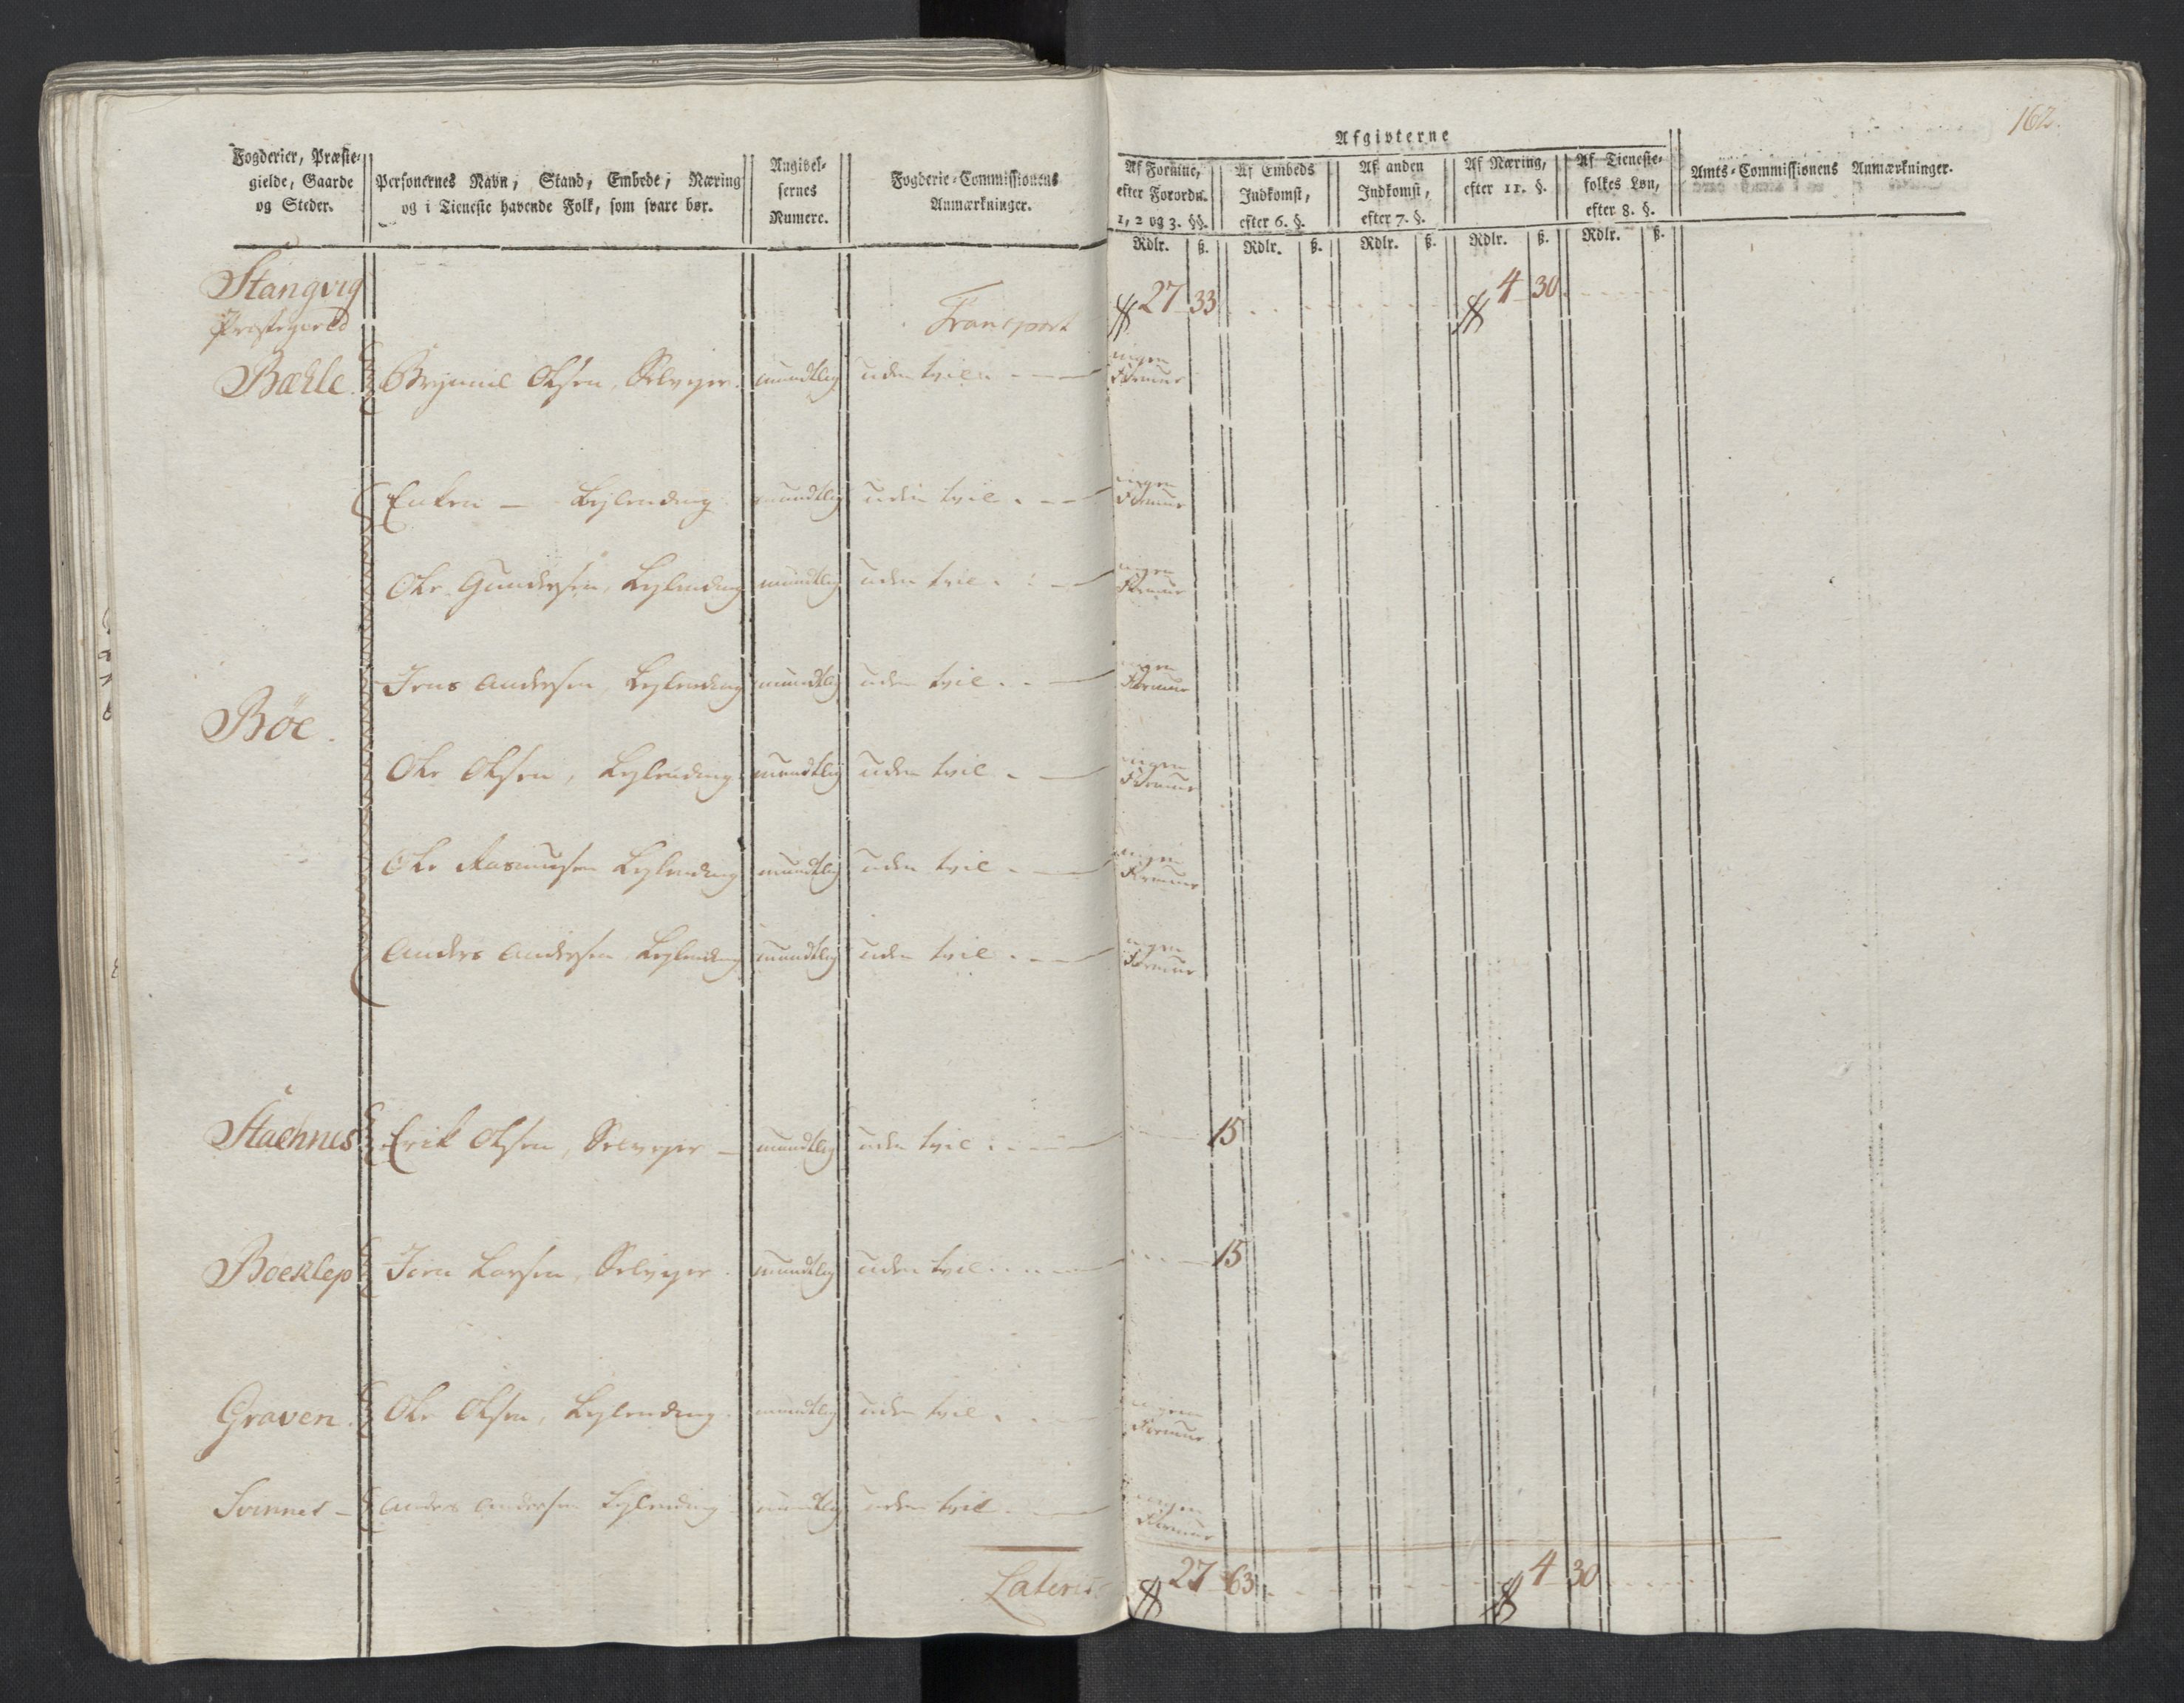 162.
Fogderier, Præste-
gielde, Gaarde
og Steder.
Personernes Navn, Stand, Embede, Næring
og i Tieneste havende Folk, som svare bør.
Angivel-
sernes
Numere.
Fogderie-Commissionens
Anmærkninger.
Afgivterne
Af Formue,
efter Forordn.
1, 2 og 3. §§.
Af Embeds
Indkomst,
efter 6. §.
Af anden
Indkomst,
efter 7. §.
Af Næring,
efter 11. §.
Af Tieneste-
folkes Løn,
efter 8. §.
Amts-Commissionens Anmærkninger.
Rdlr. ß. Rdlr. ß. Rdlr. ß. Rdlr. ß. Rdlr. ß.
Stangvig
Præstegield
Transport 27 33 4 30
Bæhle Brynnil Olsen, Selveyer mundtlig uden tvil ingen Formue
Enken - Leylending mundtlig uden tvil ingen Formue
Ole Gundersen, Leylending mundtlig uden tvil ingen Formue
Jens Andersen, Leylending mundtlig uden tvil ingen Formue
Bøe.
Ole Olsen, Leylending mundtlig uden tvil ingen Formue
Ole Rasmusen Leylending mundtlig uden tvil ingen Formue
Anders Andersen Leylending mundtlig uden tvil ingen Formue
Erik Olsen, Selveyer - mundtlig uden tvil 15
Boeklep Larsen, Selveyer mundtlig uden tvil 15
Graven. Ole Olsen, Leylending mundtlig uden tvil ingen Formue
Svinnes - Anders Andersen Leylending mundtlig uden tvil ingen Formue
Lateris 27 63 4 30